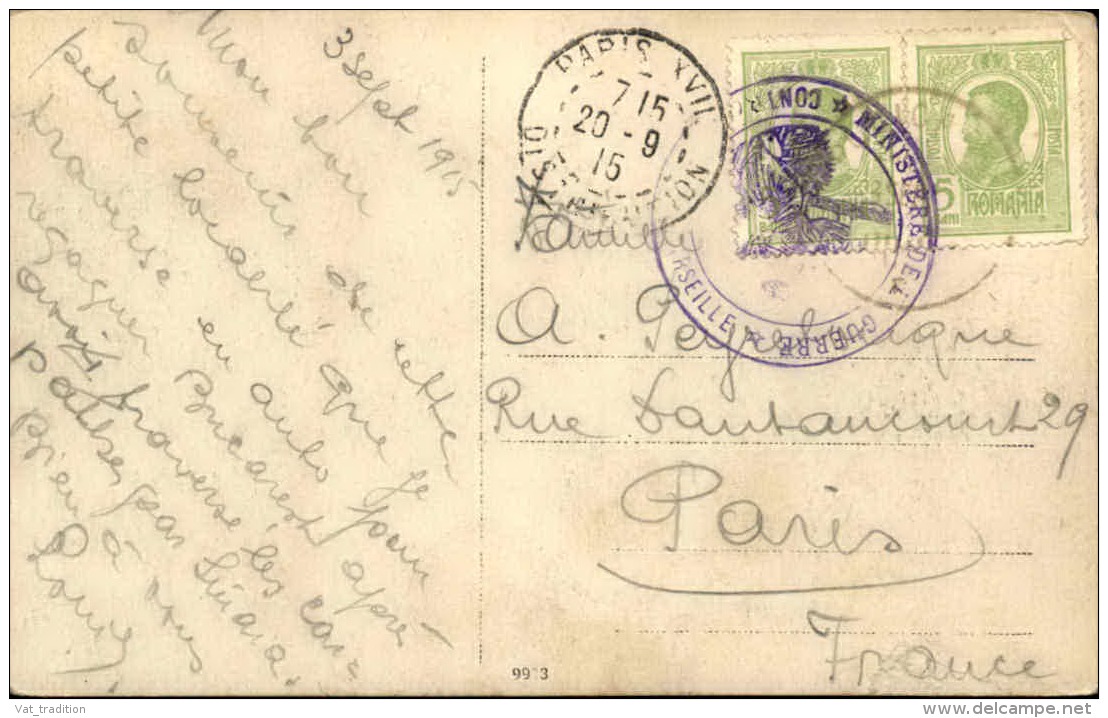 3 sept 1915
Mon bon
souvenir de cette
petite localité que je
traverse en auto pour
regagner Bucarest après
avoir traversé les Car=
pathes par Sinaia.
Bien à vous
PARIS XVII
7 15
20 - 9
15
DISTRIBUTION
MINISTERE DE LA GUERRE
CONTR
MARSEILLE
5
ROMANIA
Famille
A. Peyrebrugue
Rue Dautancourt 29
Paris
France
9913
Vat_tradition
delcampe.net